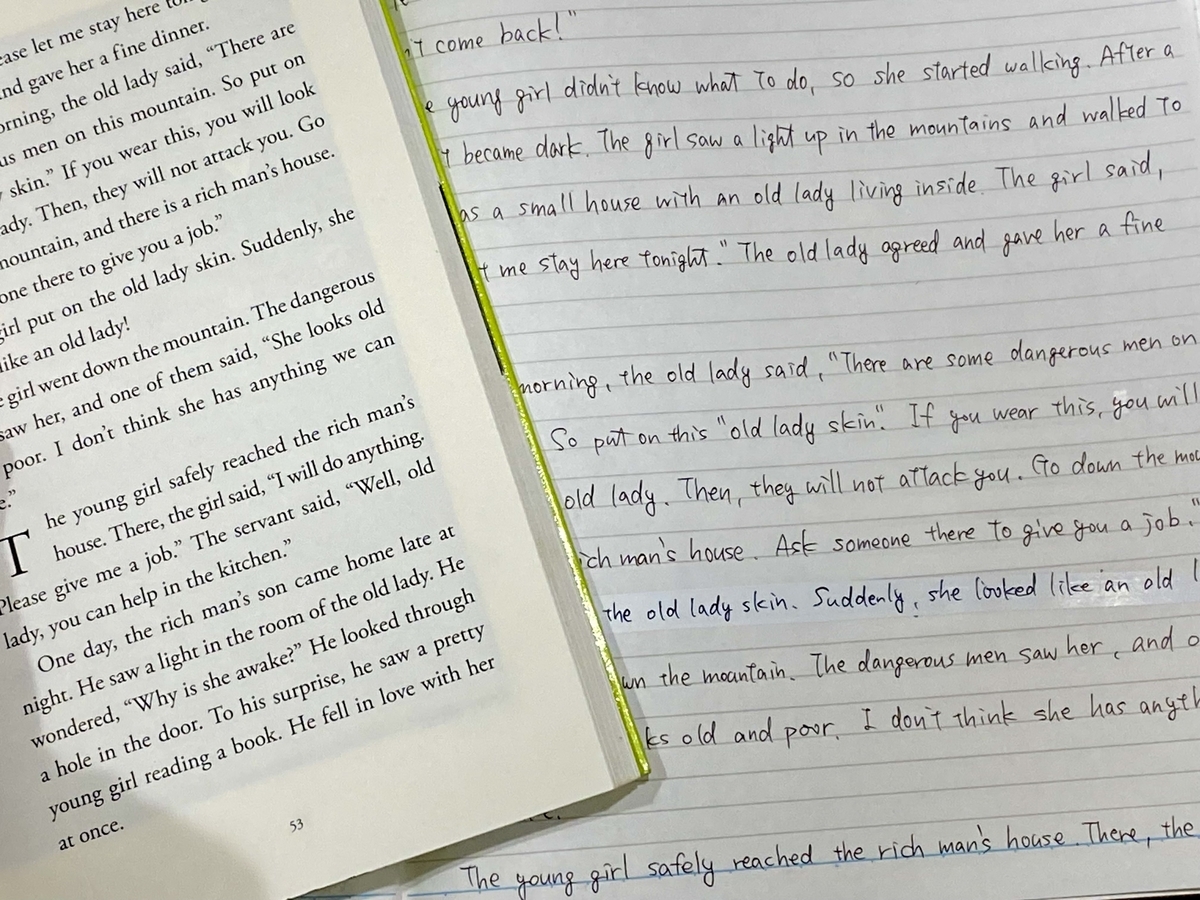 ease let me stay here
nd gave her a fine dinner.
orning, the old lady said, “There are
us men on this mountain. So put on
skin.” If you wear this, you will look
ady. Then, they will not attack you. Go
mountain, and there is a rich man’s house.
one there to give you a job.”
girl put on the old lady skin. Suddenly, she
like an old lady!
girl went down the mountain. The dangerous
saw her, and one of them said, “She looks old
poor. I don’t think she has anything we can
e.”
The young girl safely reached the rich man’s
house. There, the girl said, “I will do anything.
Please give me a job.” The servant said, “Well, old
lady, you can help in the kitchen.”
One day, the rich man’s son came home late at
night. He saw a light in the room of the old lady. He
wondered, “Why is she awake?” He looked through
a hole in the door. To his surprise, he saw a pretty
young girl reading a book. He fell in love with her
at once.
53
't come back!"
e young girl didn't know what to do, so she started walking. After a
t became dark. The girl saw a light up in the mountains and walked to
as a small house with an old lady living inside. The girl said,
t me stay here tonight." The old lady agreed and gave her a fine
morning, the old lady said, "There are some dangerous men on
So put on this "old lady skin". If you wear this, you will
old lady. Then, they will not attack you. Go down the mou
ich man's house. Ask someone there to give you a job."
the old lady skin. Suddenly, she looked like an old l
wn the mountain. The dangerous men saw her, and o
ks old and poor. I don't think she has anyth
The young girl safely reached the rich man's house. There, the